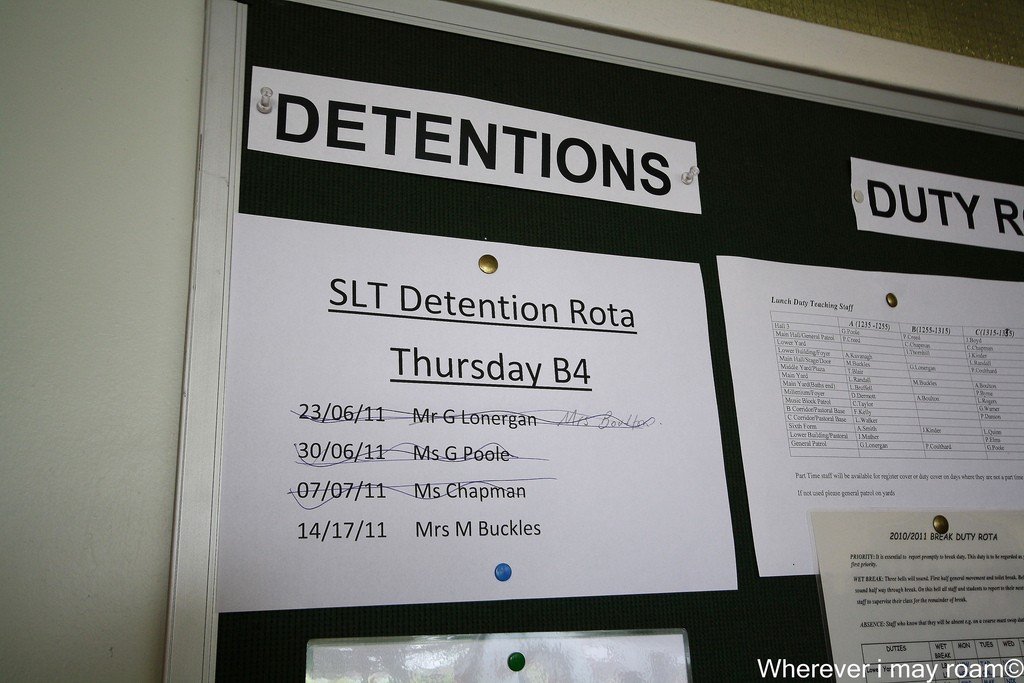 DETENTIONS
SLT Detention Rota
Thursday B4
23/06/11 Mr G Lonergan Mrs Boulton.
30/06/11 Ms G Poole
07/07/11 Ms Chapman
14/17/11 Mrs M Buckles
DUTY R
Lunch Duty Teaching Staff
A (1235 -1255) B(1255-1315) C(1315-1335)
Hall 3 G.Poole P.Creed J.Boyd
Main Hall/General Patrol P.Creed C.Chapman C.Chapman
Lower Yard J.Thornhill J.Kinder
Lower Building/Foyer A.Kavanagh L.Randall
Main Hall/Stage/Door M.Buckles G.Lonergan P.Coulthard
Middle Yard/Plaza T.Blair
Main Yard L.Randall M.Buckles A.Boulton
Main Yard(Baths end) P.Byrne
Millenium/Foyer D.Dermott A.Boulton L.Rogers
Music Block Patrol C.Taylor G.Warner
B Corridor/Pastoral Base F.Kelly P.Dunson
C Corridor/Pastoral Base L.Walker
Sixth Form A.Smith J.Kinder L.Quinn
Lower Building/Pastoral J.Mather P.Elms
General Patrol G.Lonergan P.Coulthard G.Poole
Part Time staff will be available for register cover or duty cover on days where they are not a part time
If not used please general patrol on yards
2010/2011 BREAK DUTY ROTA
PRIORITY: It is essential to report promptly to break duty. This duty is to be regarded as
first priority.
WET BREAK: Three bells will sound. First half general movement and toilet break.
sound half way through break. On this bell all staff and students to report to their
staff to supervise their class for the remainder of break.
ABSENCE: Staff who know that they will be absent e.g. on a course must swap
DUTIES WET BREAK MON TUES WED
Wherever i may roam©